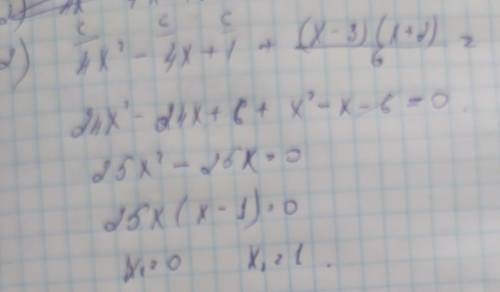 2) 4x² - 4x + 1 + (x-3)(x+2)/6 =
24x² - 24x + 6 + x² - x - 6 = 0
25x² - 25x = 0
25x(x-1) = 0
x₁ = 0 x₂ = 1.